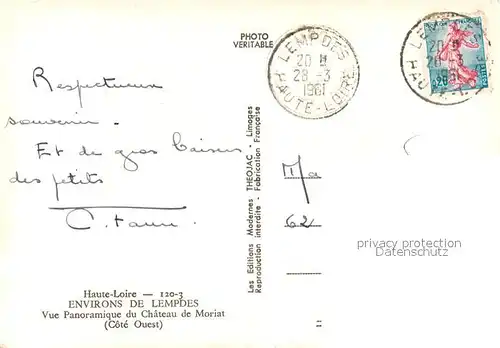 PHOTO
VERITABLE
LEMPDES
20 H
28 -3
1961
HAUTE-LOIRE
LEMPDES
20 H
28 -3
1961
0,20
Respectueux
souvenir.
Et de gros baisers
des petits
Les Editions Modernes THEOJAC - Limoges
Reproduction interdite - Fabrication Française
M/a
62
privacy protection
Datenschutz
Haute-Loire — 120-3
ENVIRONS DE LEMPDES
Vue Panoramique du Château de Moriat
(Côté Ouest)